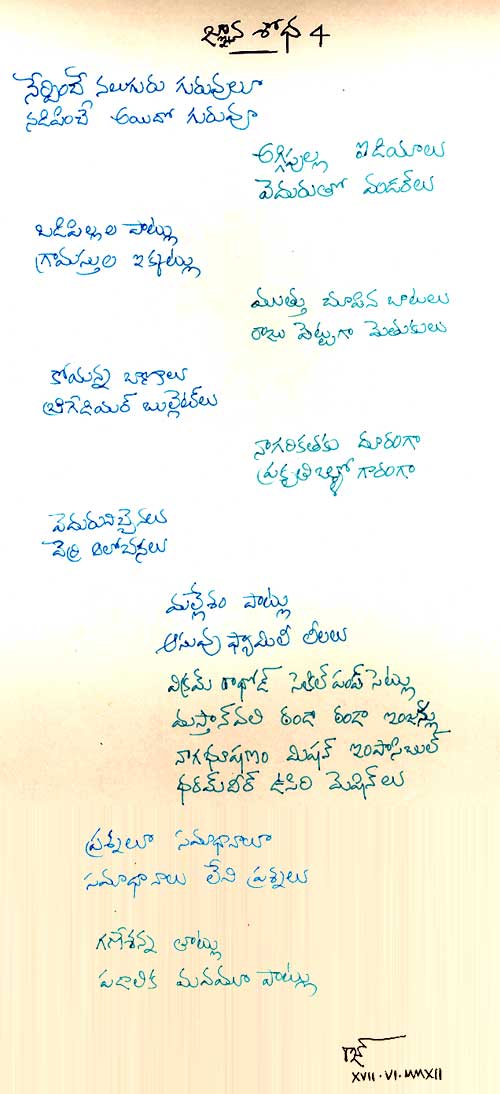 జ్ఞాన శోధ 4
నేర్పించే నలుగురు గురువులూ
నడిపించే అయిదో గురువూ
అగ్గిపుల్ల ఐడియాలు
వెదురుతో వండర్‌లు
బడిపిల్లల పాట్లు
గ్రామస్తుల ఇక్కట్లు
ముత్తు చూపిన బాటలు
రాజు పెట్టుగా మెతుకులు
కోయన్న బాణాలు
బ్రిగేడియర్ బుల్లెట్‌లు
నాగరికతకు దూరంగా
ప్రకృతిఒళ్ళో గారంగా
వెదురునిచ్చెనలు
వెర్రి ఆలోచనలు
మల్లేశం పాట్లు
ఆసువు ఫ్యామిలీ లీలలు
విక్రమ్ రాథోడ్ సెల్‌ల్ పంప్ సెట్లు
మస్తాన్‌వలి ఠండా ఠండా ఇంజన్లు
నాగభూషణం మిషన్ ఇంపాసిబుల్
ధరమ్‌వీర్ ఉసిరి మెషిన్‌లు
ప్రశ్నలూ సమాధానాలూ
సమాధానాలు లేని ప్రశ్నలు
గణేశన్న తాట్లు
పదాలిక మనమూ పాట్లు
రాజ్
XVII·VI·MMXII